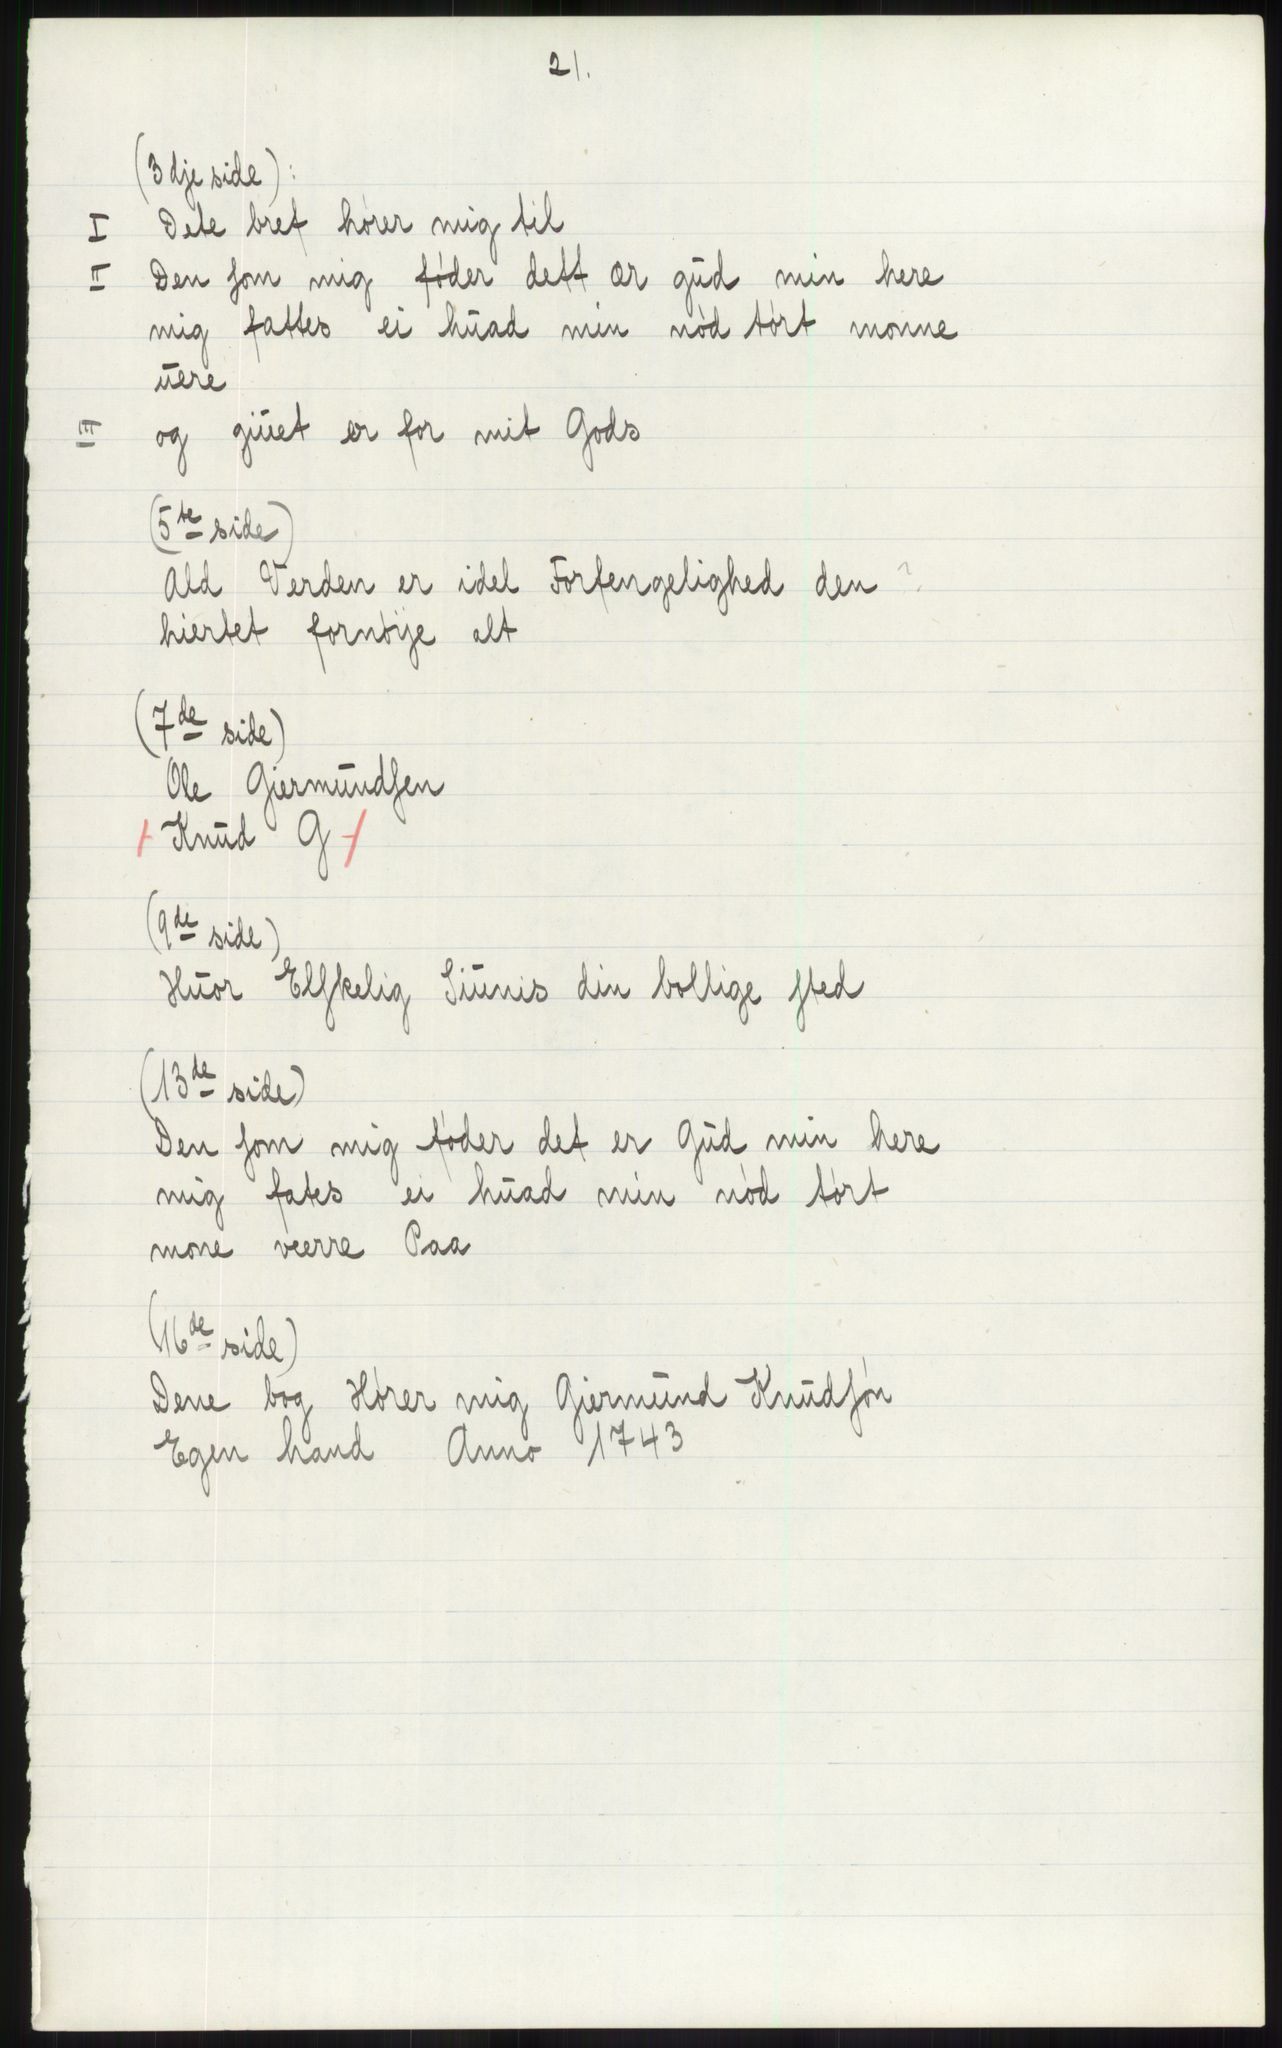 21.
(3dje side):
I Dete bref hører mig til
II Den som mig føder dett er gūd min here
mig fattes ei hūad min nød tørt monne
ūere
III og giūet er for mit Gods
(5te side)
Ald Verden er idel Forfengelighed den ?
hiertet fornøije alt
(7de side)
Ole Giermūndsen
+ Knūd G +
(9de side)
Hūor Elskelig Siūnis din bollige sted
(13de side)
Den som mig føder det er Gūd min here
mig fates ei hūad min nød tørt
mone veerre Paa
(16de side)
Dene bog Hører mig Giermūnd Knūdsøn
Egen hand Anno 1743